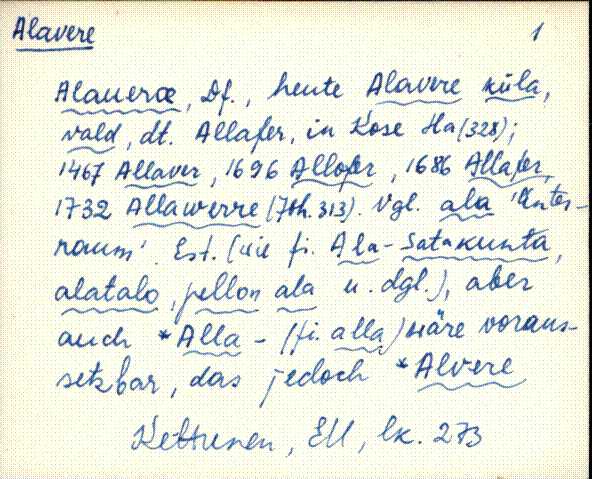 Alavere 1
Alaueræ, Df., heute Alavere küla,
vald, dt. Allafer, in Kose Ha (328);
1467 Allaver, 1696 Allofer, 1686 Allafer,
1732 Allawerre (Joh. 313). Vgl. ala 'Unter-
raum'. Est. (wie fi. Ala-Satakunta,
alatalo, pellon ala u. dgl.), aber
auch *Alla- (fi. alla) wäre voraus-
setzbar, das jedoch *Alvere
Kettunen, EM, lk. 273